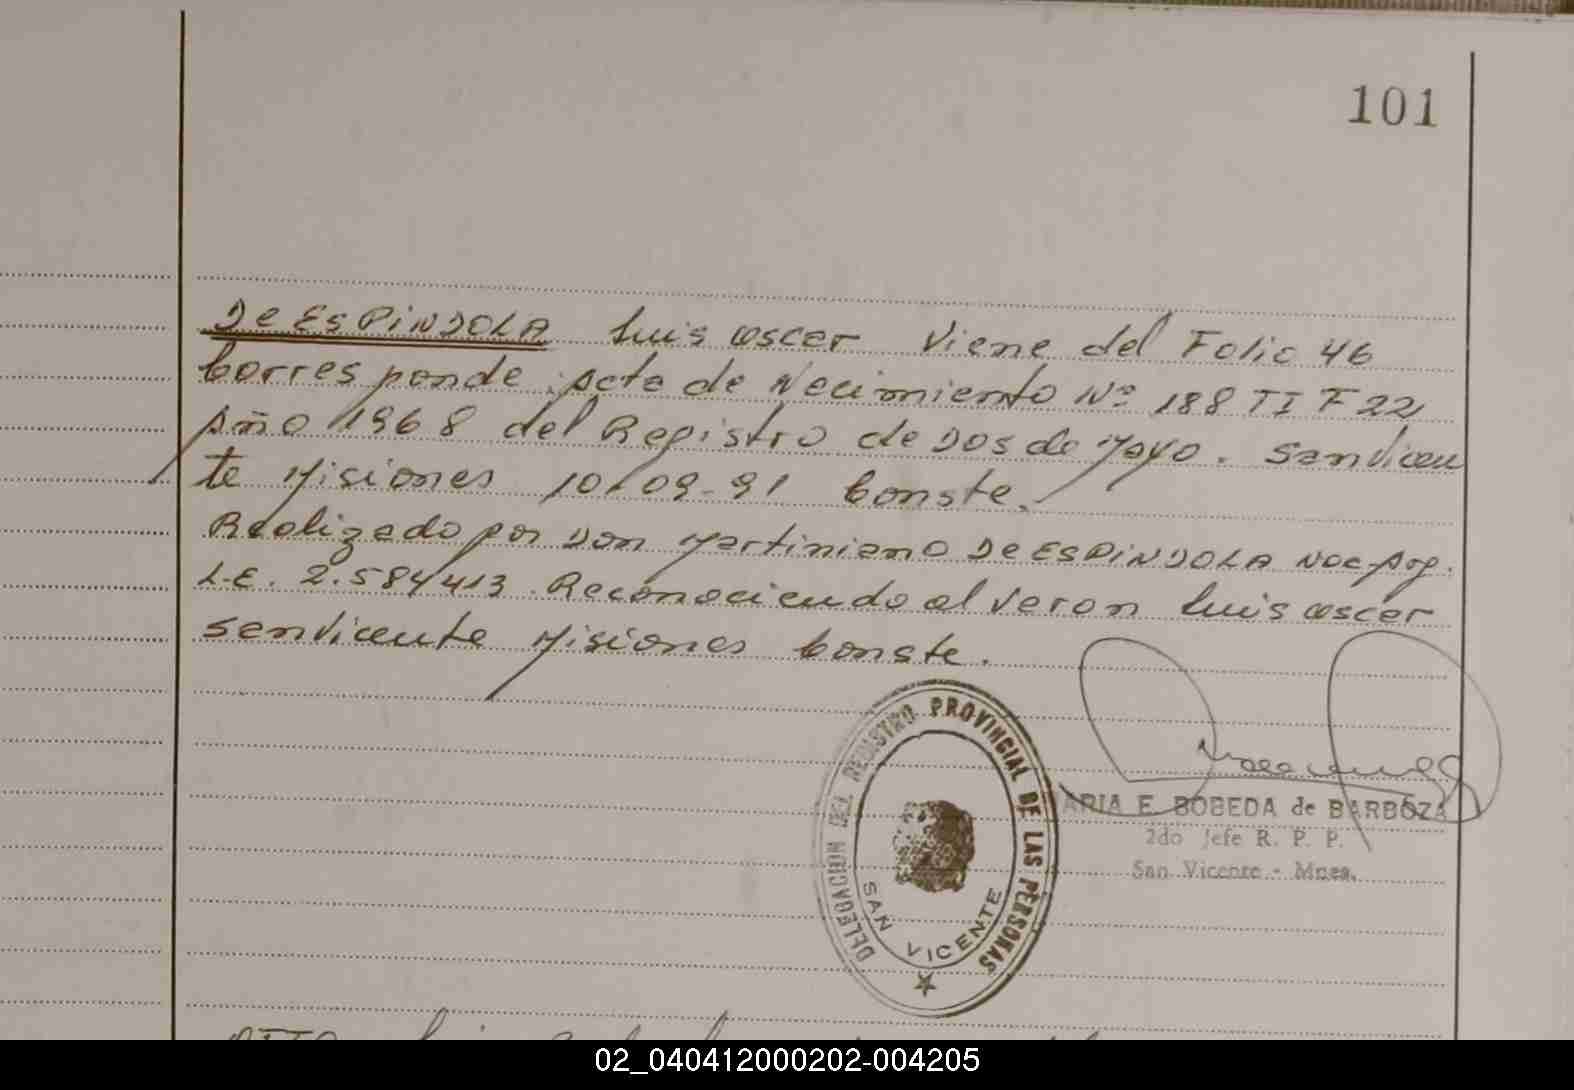 101
De ESPINDOLA Luis Oscar Viene del Folio 46
Corresponde acta de Nacimiento Nº 188 TI F 22
Año 1968 del Registro de Dos de Mayo. San Vicen
te Misiones 10-09-91 Conste.
Realizado por Don Martiniano De ESPINDOLA Nac. Arg.
L.E. 2.584413. Reconociendo al Veron Luis Oscar
San Vicente Misiones Conste.
DELEGACION DEL REGISTRO PROVINCIAL DE LAS PERSONAS
SAN VICENTE
ARIA E. BOBEDA de BARBOZA
2do Jefe R. P. P.
San Vicente - Mnes.
02_040412000202-004205